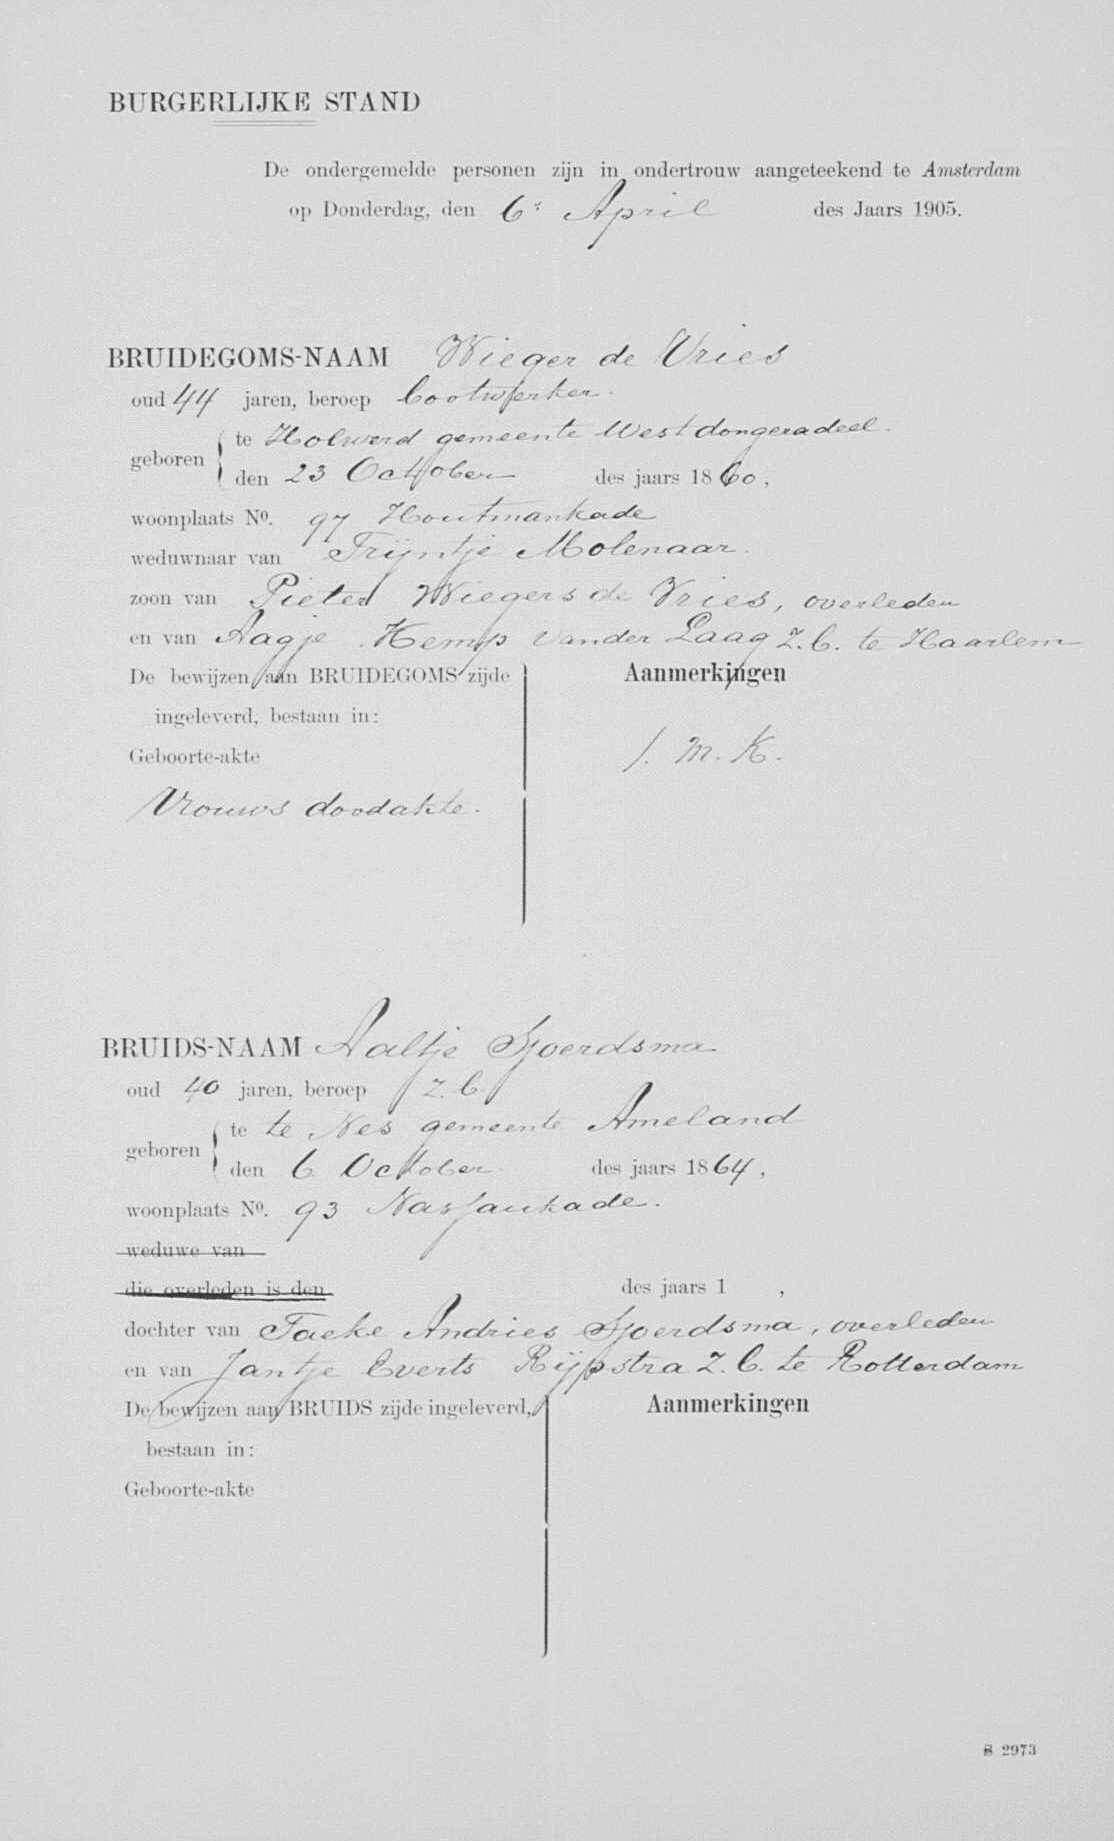 BURGERLIJKE STAND
De ondergemelde personen zijn in ondertrouw aangeteekend te Amsterdam
op Donderdag, den 6e April des Jaars 1905.
BRUIDEGOMS-NAAM Wieger de Vries
oud 44 jaren, beroep bootwerker.
geboren te Holwerd gemeente Westdongeradeel.
den 23 October des jaars 1860,
woonplaats No. 97 Houtmankade
weduwnaar van Trijntje Molenaar.
zoon van Pieter Wiegers de Vries, overleden
en van Aagje Kemp van der Laag Z. b. te Haarlem
De bewijzen aan BRUIDEGOMS zijde
ingeleverd, bestaan in:
Geboorte-akte
Vrouws doodakte.
Aanmerkingen
1. M. K.
BRUIDS-NAAM Aaltje Sjoerdsma
oud 40 jaren, beroep Z. b.
geboren te te Nes gemeente Ameland
den 6 October des jaars 1864,
woonplaats No. 93 Nassaukade.
weduwe van
die overleden is den des jaars 1 ,
dochter van Taeke Andries Sjoerdsma, overleden
en van Jantje Everts Rijpstra Z. b. te Rotterdam
De bewijzen aan BRUIDS zijde ingeleverd,
bestaan in:
Geboorte-akte
Aanmerkingen
S 2973